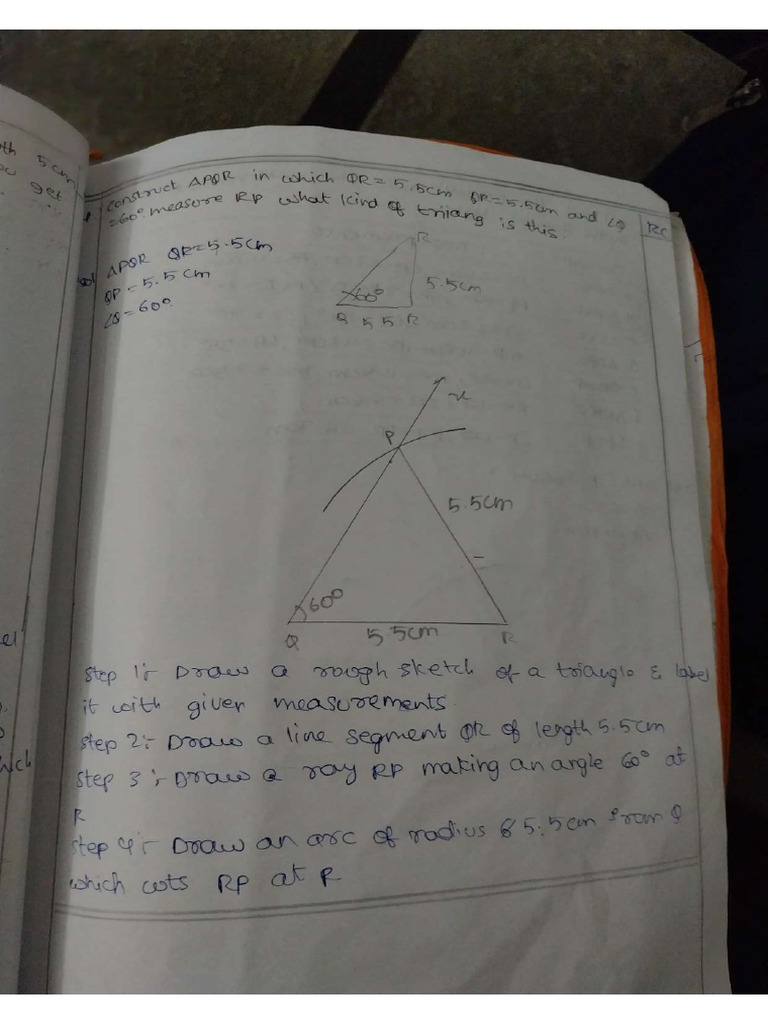 th 5cm
ou get
construct ΔPQR in which QR=5.5cm QP=5.5cm and ∠Q
=60° measure RP what kind of triiang is this.
RC
Sol ΔPQR QR=5.5cm
QP=5.5cm
∠Q=60°.
R
5.5cm
60°
Q 5 5 R
x
P
5.5cm
60°
Q 5.5cm R
Step 1:- Draw a rough sketch of a triangle & label
it with given measurements.
Step 2:- Draw a line segment QR of length 5.5cm
Step 3:- Draw a ray RP making an angle 60° at
R
Step 4:- Draw an arc of radius 5.5cm from Q
which cuts RP at R
el
hich